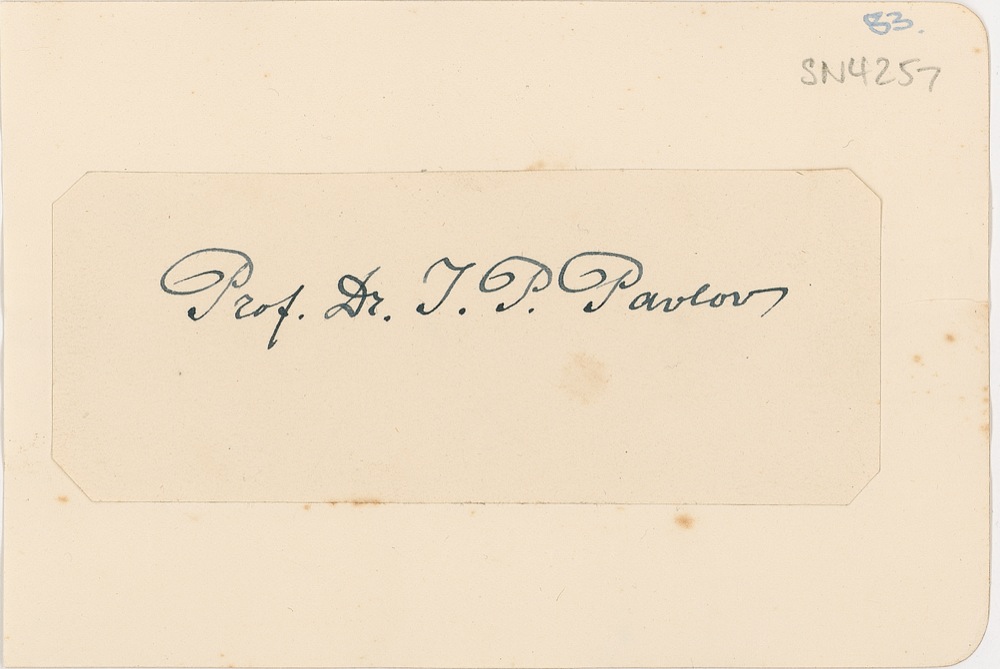 83.
SN4257
Prof. Dr. I. P. Pavlov